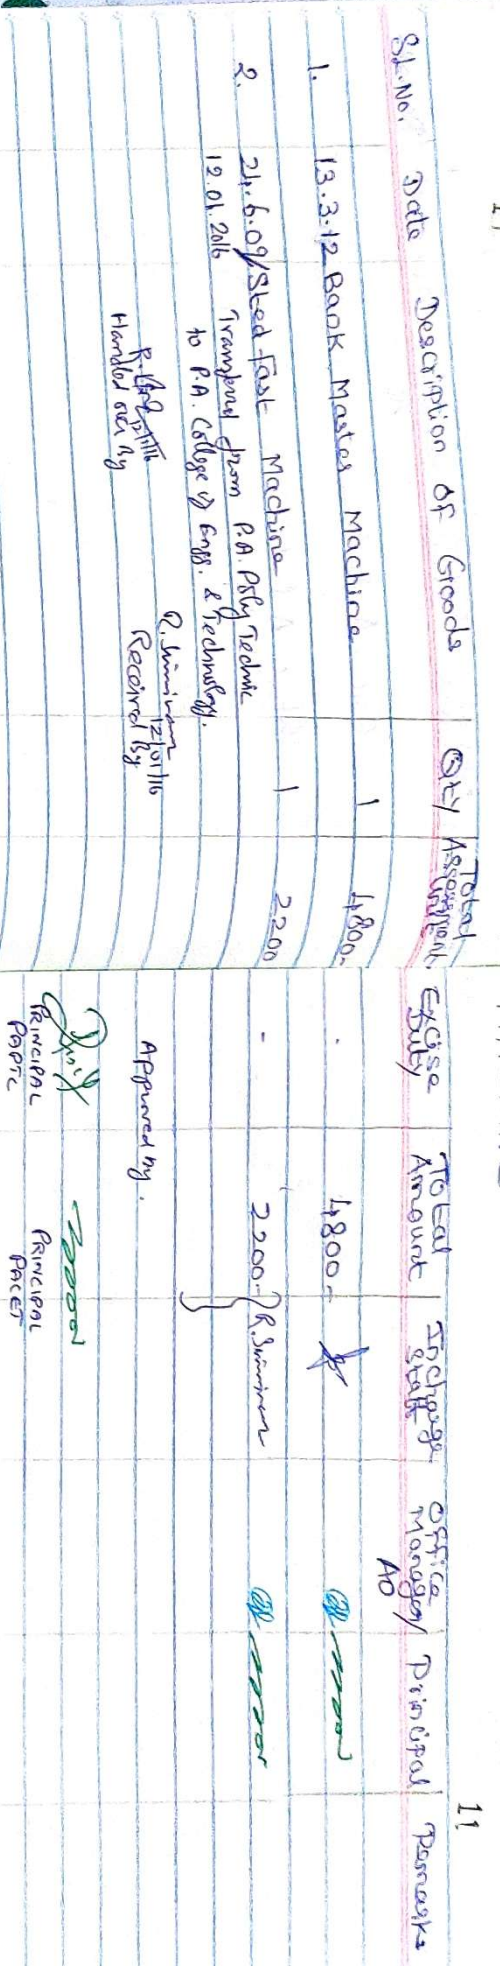 11
Sl.No. Date Description of Goods Qty Total Assessment Unit. Excise Duty Total Amount Incharge Staff Office Manager/ AO Principal Remarks
1. 13.3.12 Bank Master Machine 1 4800- - 4800-
2. 24.6.09/ Sted fast Machine 1 2200 - 2200- R. Srinivasan
12.01.2016 Transfered from P.A. Poly Technic
to P.A. College of Engg. & Technology.
Approved By.
R. Srinivasan
12/01/16
Handed over By Received By
PRINCIPAL PAPTC PRINCIPAL PACET